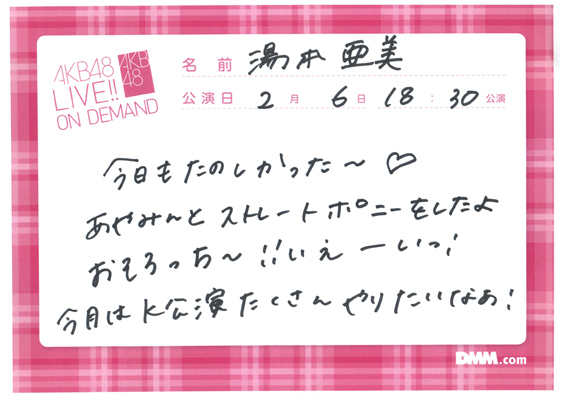 AKB48
LIVE!!
ON DEMAND
AKB
48
名前 湯本 亜美
公演日 2月 6日 18:30公演
今日もたのしかった〜♡
あやみんとストレートポニーをしたよ
おそろっち〜!!いえーいっ!
今月はK公演たくさんやりたいなあ!
DMM.com